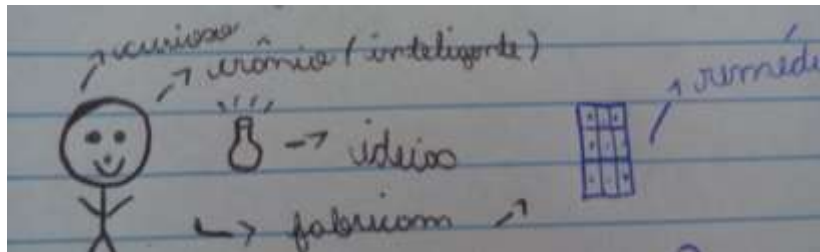 curioso
crânio (inteligente)
remédi
ideias
fabricam